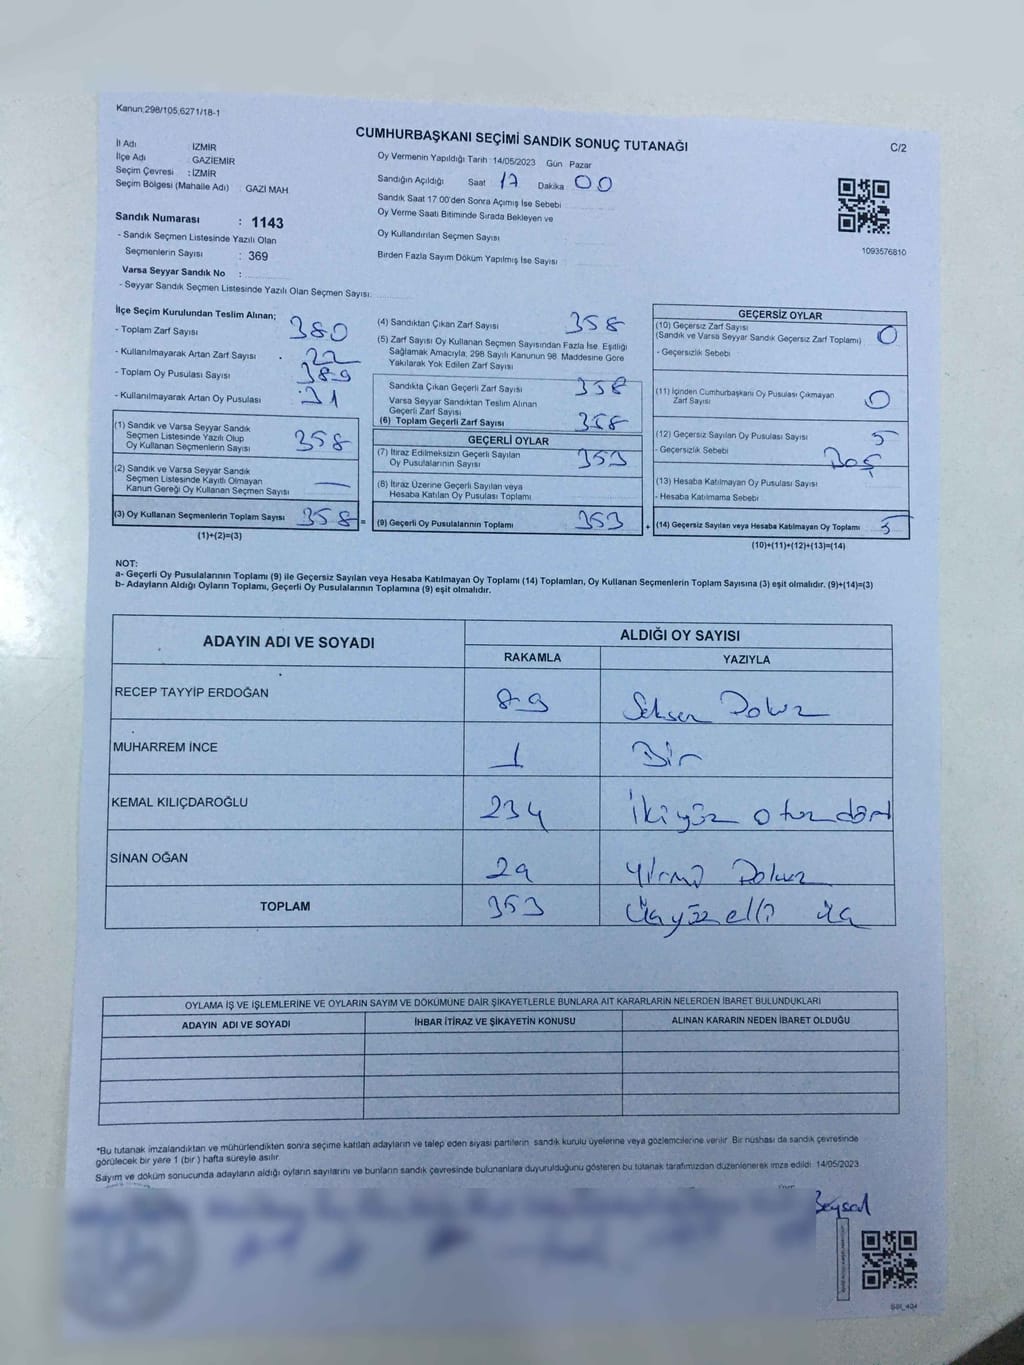 Kanun:298/105,6271/18-1
CUMHURBAŞKANI SEÇİMİ SANDIK SONUÇ TUTANAĞI
C/2
İl Adı : İZMİR
İlçe Adı : GAZİEMİR
Seçim Çevresi : İZMİR
Seçim Bölgesi (Mahalle Adı) : GAZİ MAH.
Oy Vermenin Yapıldığı Tarih :14/05/2023 Gün Pazar
Sandığın Açıldığı Saat 17 Dakika 00
Sandık Saat 17:00'den Sonra Açılmış İse Sebebi
Oy Verme Saati Bitiminde Sırada Bekleyen ve
Oy Kullandırılan Seçmen Sayısı
Birden Fazla Sayım Döküm Yapılmış İse Sayısı :
1093576810
Sandık Numarası : 1143
- Sandık Seçmen Listesinde Yazılı Olan
Seçmenlerin Sayısı : 369
Varsa Seyyar Sandık No :
- Seyyar Sandık Seçmen Listesinde Yazılı Olan Seçmen Sayısı:
İlçe Seçim Kurulundan Teslim Alınan;
- Toplam Zarf Sayısı 380
- Kullanılmayarak Artan Zarf Sayısı 22
- Toplam Oy Pusulası Sayısı 389
- Kullanılmayarak Artan Oy Pusulası 31
(1) Sandık ve Varsa Seyyar Sandık
Seçmen Listesinde Yazılı Olup
Oy Kullanan Seçmenlerin Sayısı 358
(2) Sandık ve Varsa Seyyar Sandık
Seçmen Listesinde Kayıtlı Olmayan
Kanun Gereği Oy Kullanan Seçmen Sayısı —
(3) Oy Kullanan Seçmenlerin Toplam Sayısı 358 =
(1)+(2)=(3)
(4) Sandıktan Çıkan Zarf Sayısı 358
(5) Zarf Sayısı Oy Kullanan Seçmen Sayısından Fazla İse, Eşitliği
Sağlamak Amacıyla, 298 Sayılı Kanunun 98. Maddesine Göre
Yakılarak Yok Edilen Zarf Sayısı
Sandıkta Çıkan Geçerli Zarf Sayısı 358
Varsa Seyyar Sandıktan Teslim Alınan
Geçerli Zarf Sayısı
(6) Toplam Geçerli Zarf Sayısı 358
GEÇERLİ OYLAR
(7) İtiraz Edilmeksizin Geçerli Sayılan
Oy Pusulalarının Sayısı 353
(8) İtiraz Üzerine Geçerli Sayılan veya
Hesaba Katılan Oy Pusulası Toplamı
(9) Geçerli Oy Pusulalarının Toplamı 353 +
GEÇERSİZ OYLAR
(10) Geçersiz Zarf Sayısı
(Sandık ve Varsa Seyyar Sandık Geçersiz Zarf Toplamı) 0
- Geçersizlik Sebebi
(11) İçinden Cumhurbaşkanı Oy Pusulası Çıkmayan
Zarf Sayısı 0
(12) Geçersiz Sayılan Oy Pusulası Sayısı 5
- Geçersizlik Sebebi Boş
(13) Hesaba Katılmayan Oy Pusulası Sayısı
- Hesaba Katılmama Sebebi
(14) Geçersiz Sayılan veya Hesaba Katılmayan Oy Toplamı 5
(10)+(11)+(12)+(13)=(14)
NOT:
a- Geçerli Oy Pusulalarının Toplamı (9) ile Geçersiz Sayılan veya Hesaba Katılmayan Oy Toplamı (14) Toplamları, Oy Kullanan Seçmenlerin Toplam Sayısına (3) eşit olmalıdır. (9)+(14)=(3)
b- Adayların Aldığı Oyların Toplamı, Geçerli Oy Pusulalarının Toplamına (9) eşit olmalıdır.
ADAYIN ADI VE SOYADI ALDIĞI OY SAYISI
RAKAMLA YAZIYLA
RECEP TAYYİP ERDOĞAN 89 Seksen Dokuz
MUHARREM İNCE 1 Bir
KEMAL KILIÇDAROĞLU 234 İkiyüz otuz dört
SİNAN OĞAN 29 Yirmi Dokuz
TOPLAM 353 Üçyüz elli üç
OYLAMA İŞ VE İŞLEMLERİNE VE OYLARIN SAYIM VE DÖKÜMÜNE DAİR ŞİKAYETLERLE BUNLARA AİT KARARLARIN NELERDEN İBARET BULUNDUKLARI
ADAYIN ADI VE SOYADI İHBAR İTİRAZ VE ŞİKAYETİN KONUSU ALINAN KARARIN NEDEN İBARET OLDUĞU
*Bu tutanak imzalandıktan ve mühürlendikten sonra seçime katılan adayların ve talep eden siyasi partilerin, sandık kurulu üyelerine veya gözlemcilerine verilir. Bir nüshası da sandık çevresinde
görülecek bir yere 1 (bir ) hafta süreyle asılır.
Sayım ve döküm sonucunda adayların aldığı oyların sayılarını ve bunların sandık çevresinde bulunanlara duyurulduğunu gösteren bu tutanak tarafımızdan düzenlenerek imza edildi. 14/05/2023
Beysal